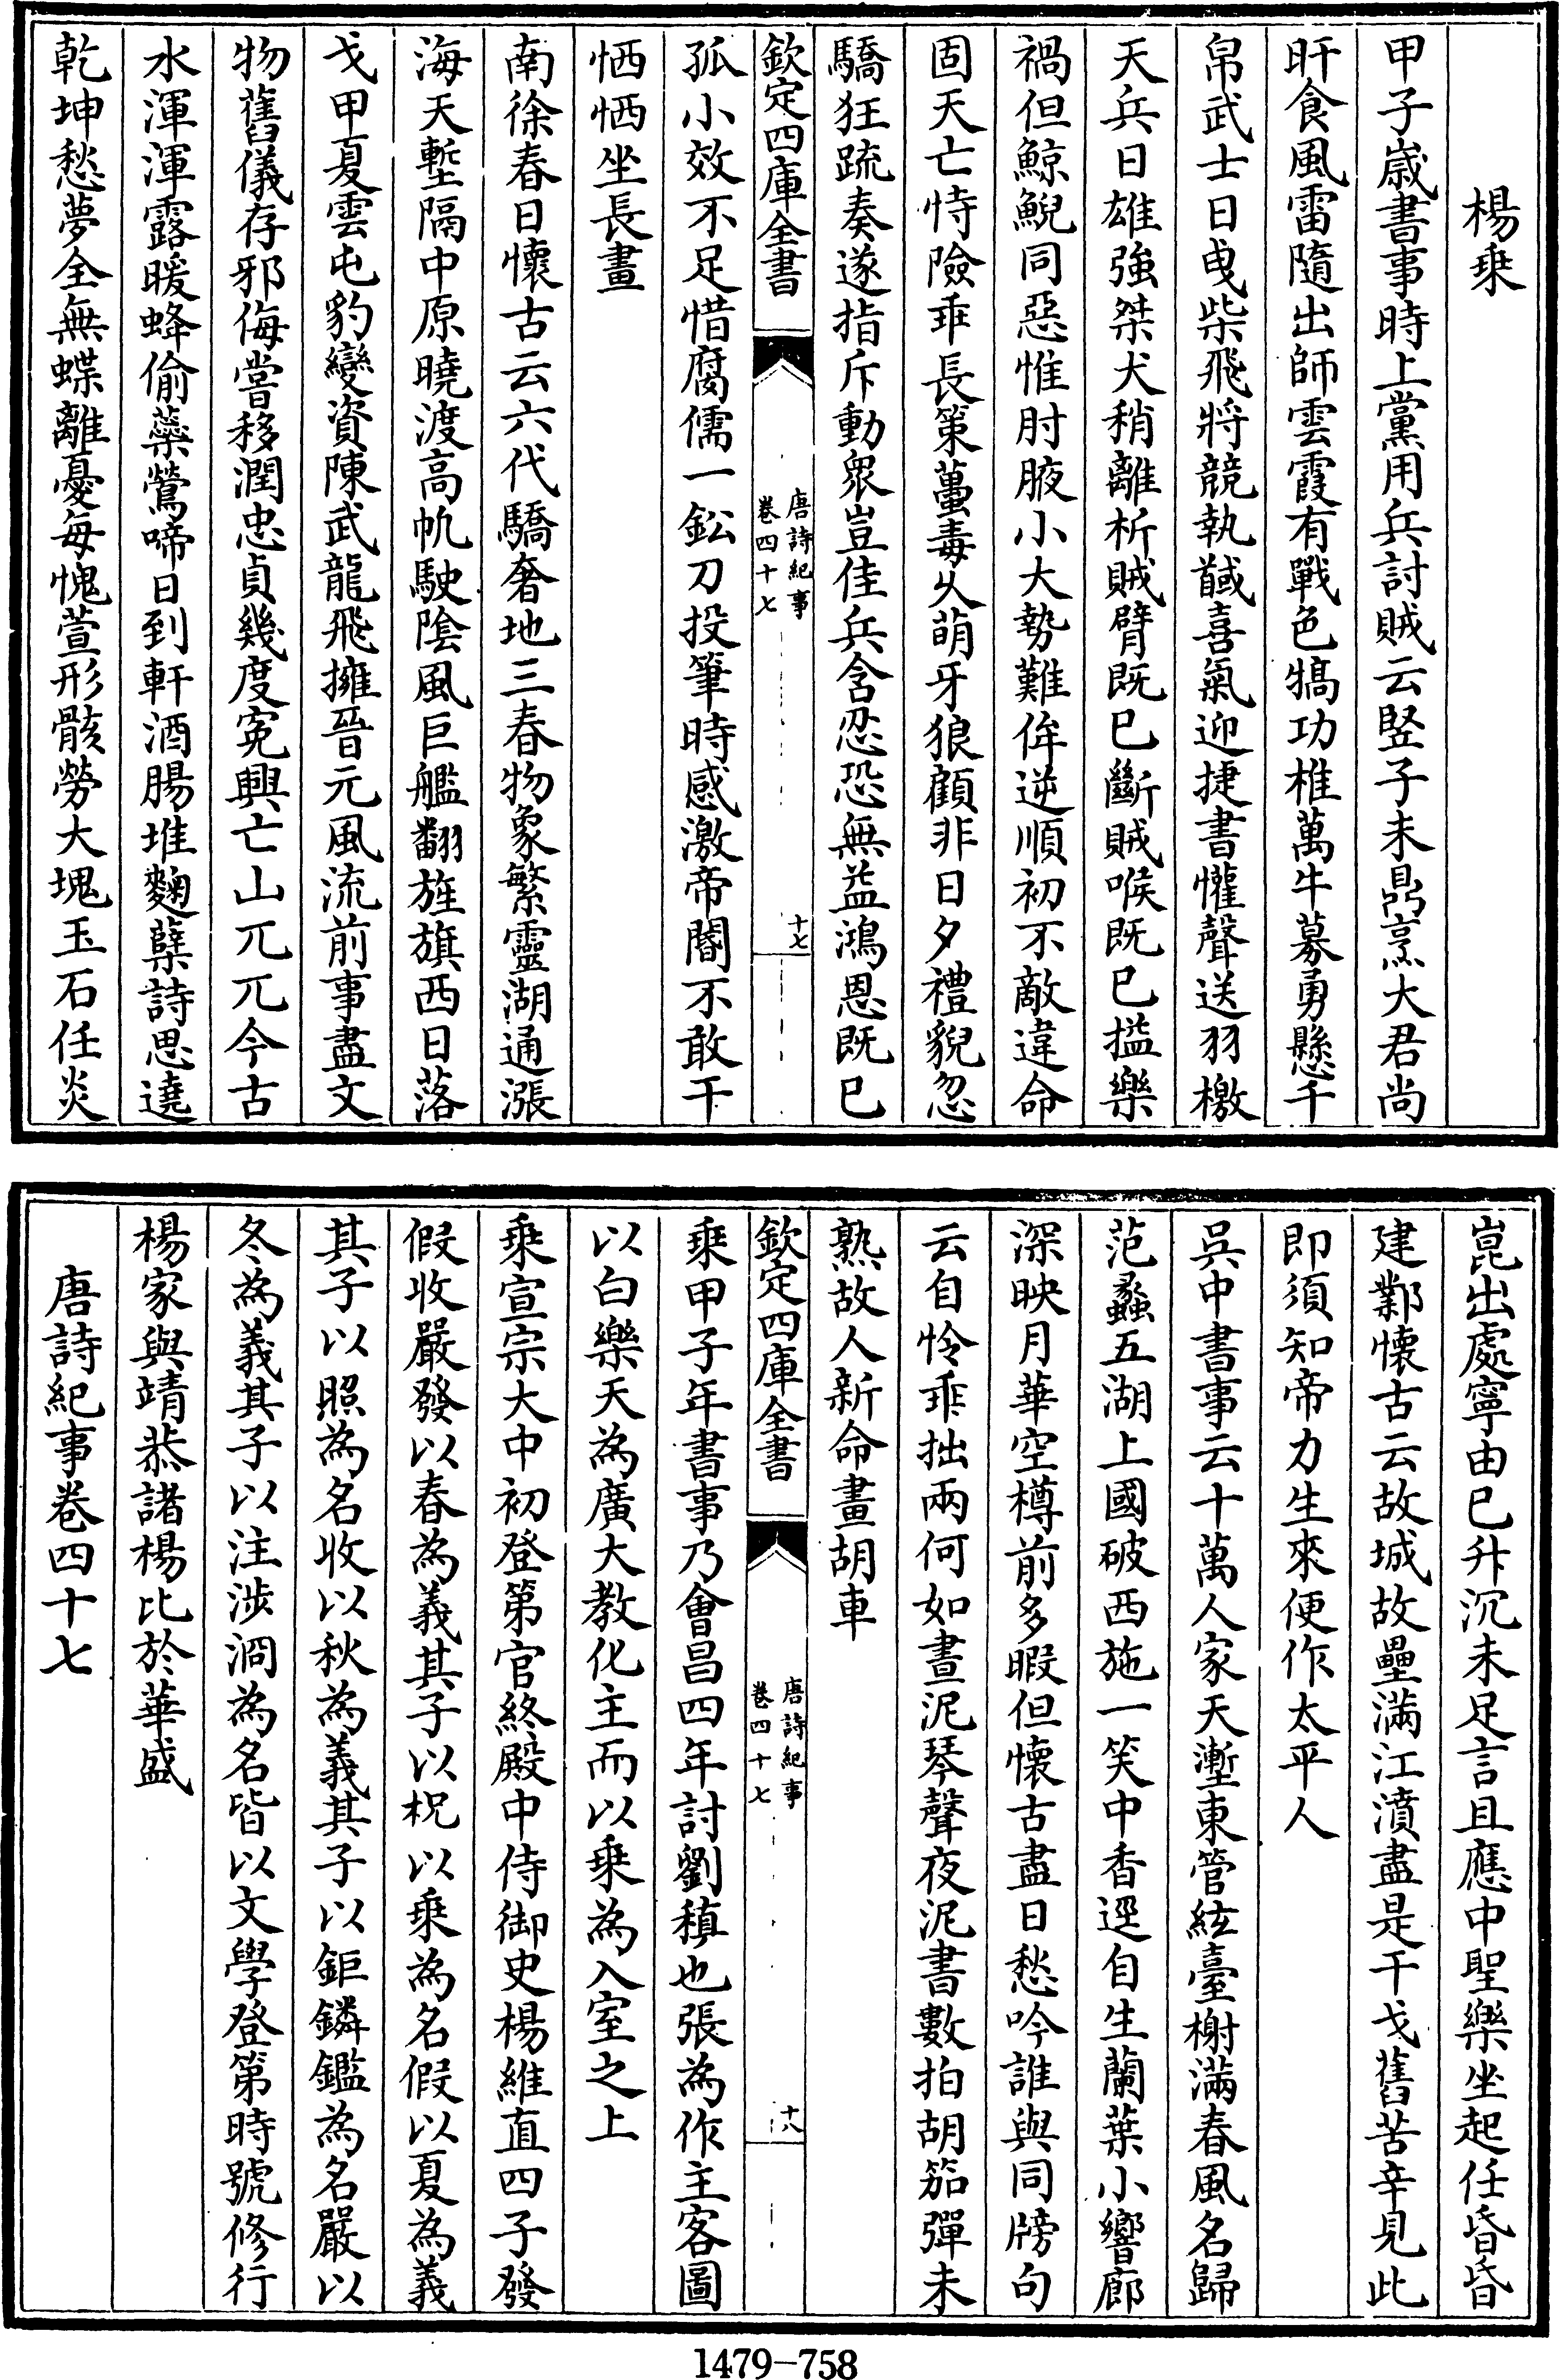 楊乗
甲子歳書事時上黨用兵討賊云竖子未鼎烹大君尚
旰食風雷隨出師雲霞有戰色犒功椎萬牛募勇懸千
帛武士日曵柴飛將競執馘喜氣迎捷書懽聲送羽檄
天兵日雄強桀犬稍離析賊臂既已斷賊喉既已搤樂
禍但鯨鯢同惡惟肘腋小大勢難侔逆順初不敵違命
固天亡恃險乖長策蠆毒久萌牙狼顧非日夕禮貌忽
驕狂疏奏遂指斥動衆豈佳兵含忍恐無益鴻恩既已
欽定四庫全書
唐詩紀事
卷四十七
十七
孤小效不足惜腐儒一鈆刀投筆時感激帝閽不敢干
恓恓坐長畫
南徐春日懷古云六代驕奢地三春物象繁靈湖通漲
海天塹隔中原曉渡高帆駛陰風巨艦翻旌旗西日落
戈甲夏雲屯豹變資陳武龍飛擁晉元風流前事盡文
物舊儀存邪侮嘗移潤忠貞幾度寃興亡山兀兀今古
水渾渾露暖蜂偷蘂鶯啼日到軒酒腸堆麴蘖詩思遶
乾坤愁夢全無蝶離憂每愧萱形骸勞大塊玉石任炎
崑出處寧由已升沉未足言且應中聖樂坐起任昏昏
建鄴懷古云故城故壘滿江濆盡是干戈舊苦辛見此
即須知帝力生來便作太平人
吳中書事云十萬人家天塹東管絃臺榭滿春風名歸
范蠡五湖上國破西施一笑中香逕自生蘭葉小響廊
深映月華空樽前多暇但懷古盡日愁吟誰與同牓句
云自怜乖拙兩何如晝泥琴聲夜泥書數拍胡笳彈未
熟故人新命畫胡車
欽定四庫全書
唐詩紀事
卷四十七
十八
乗甲子年書事乃會昌四年討劉稹也張為作主客圖
以白樂天為廣大教化主而以乗為入室之上
乗宣宗大中初登第官終殿中侍御史楊維直四子發
假收嚴發以春為義其子以柷以乗為名假以夏為義
其子以照為名收以秋為義其子以鉅鏻鑑為名嚴以
冬為義其子以注涉洞為名皆以文學登第時號修行
楊家與靖恭諸楊比於華盛
唐詩紀事卷四十七
1479-758